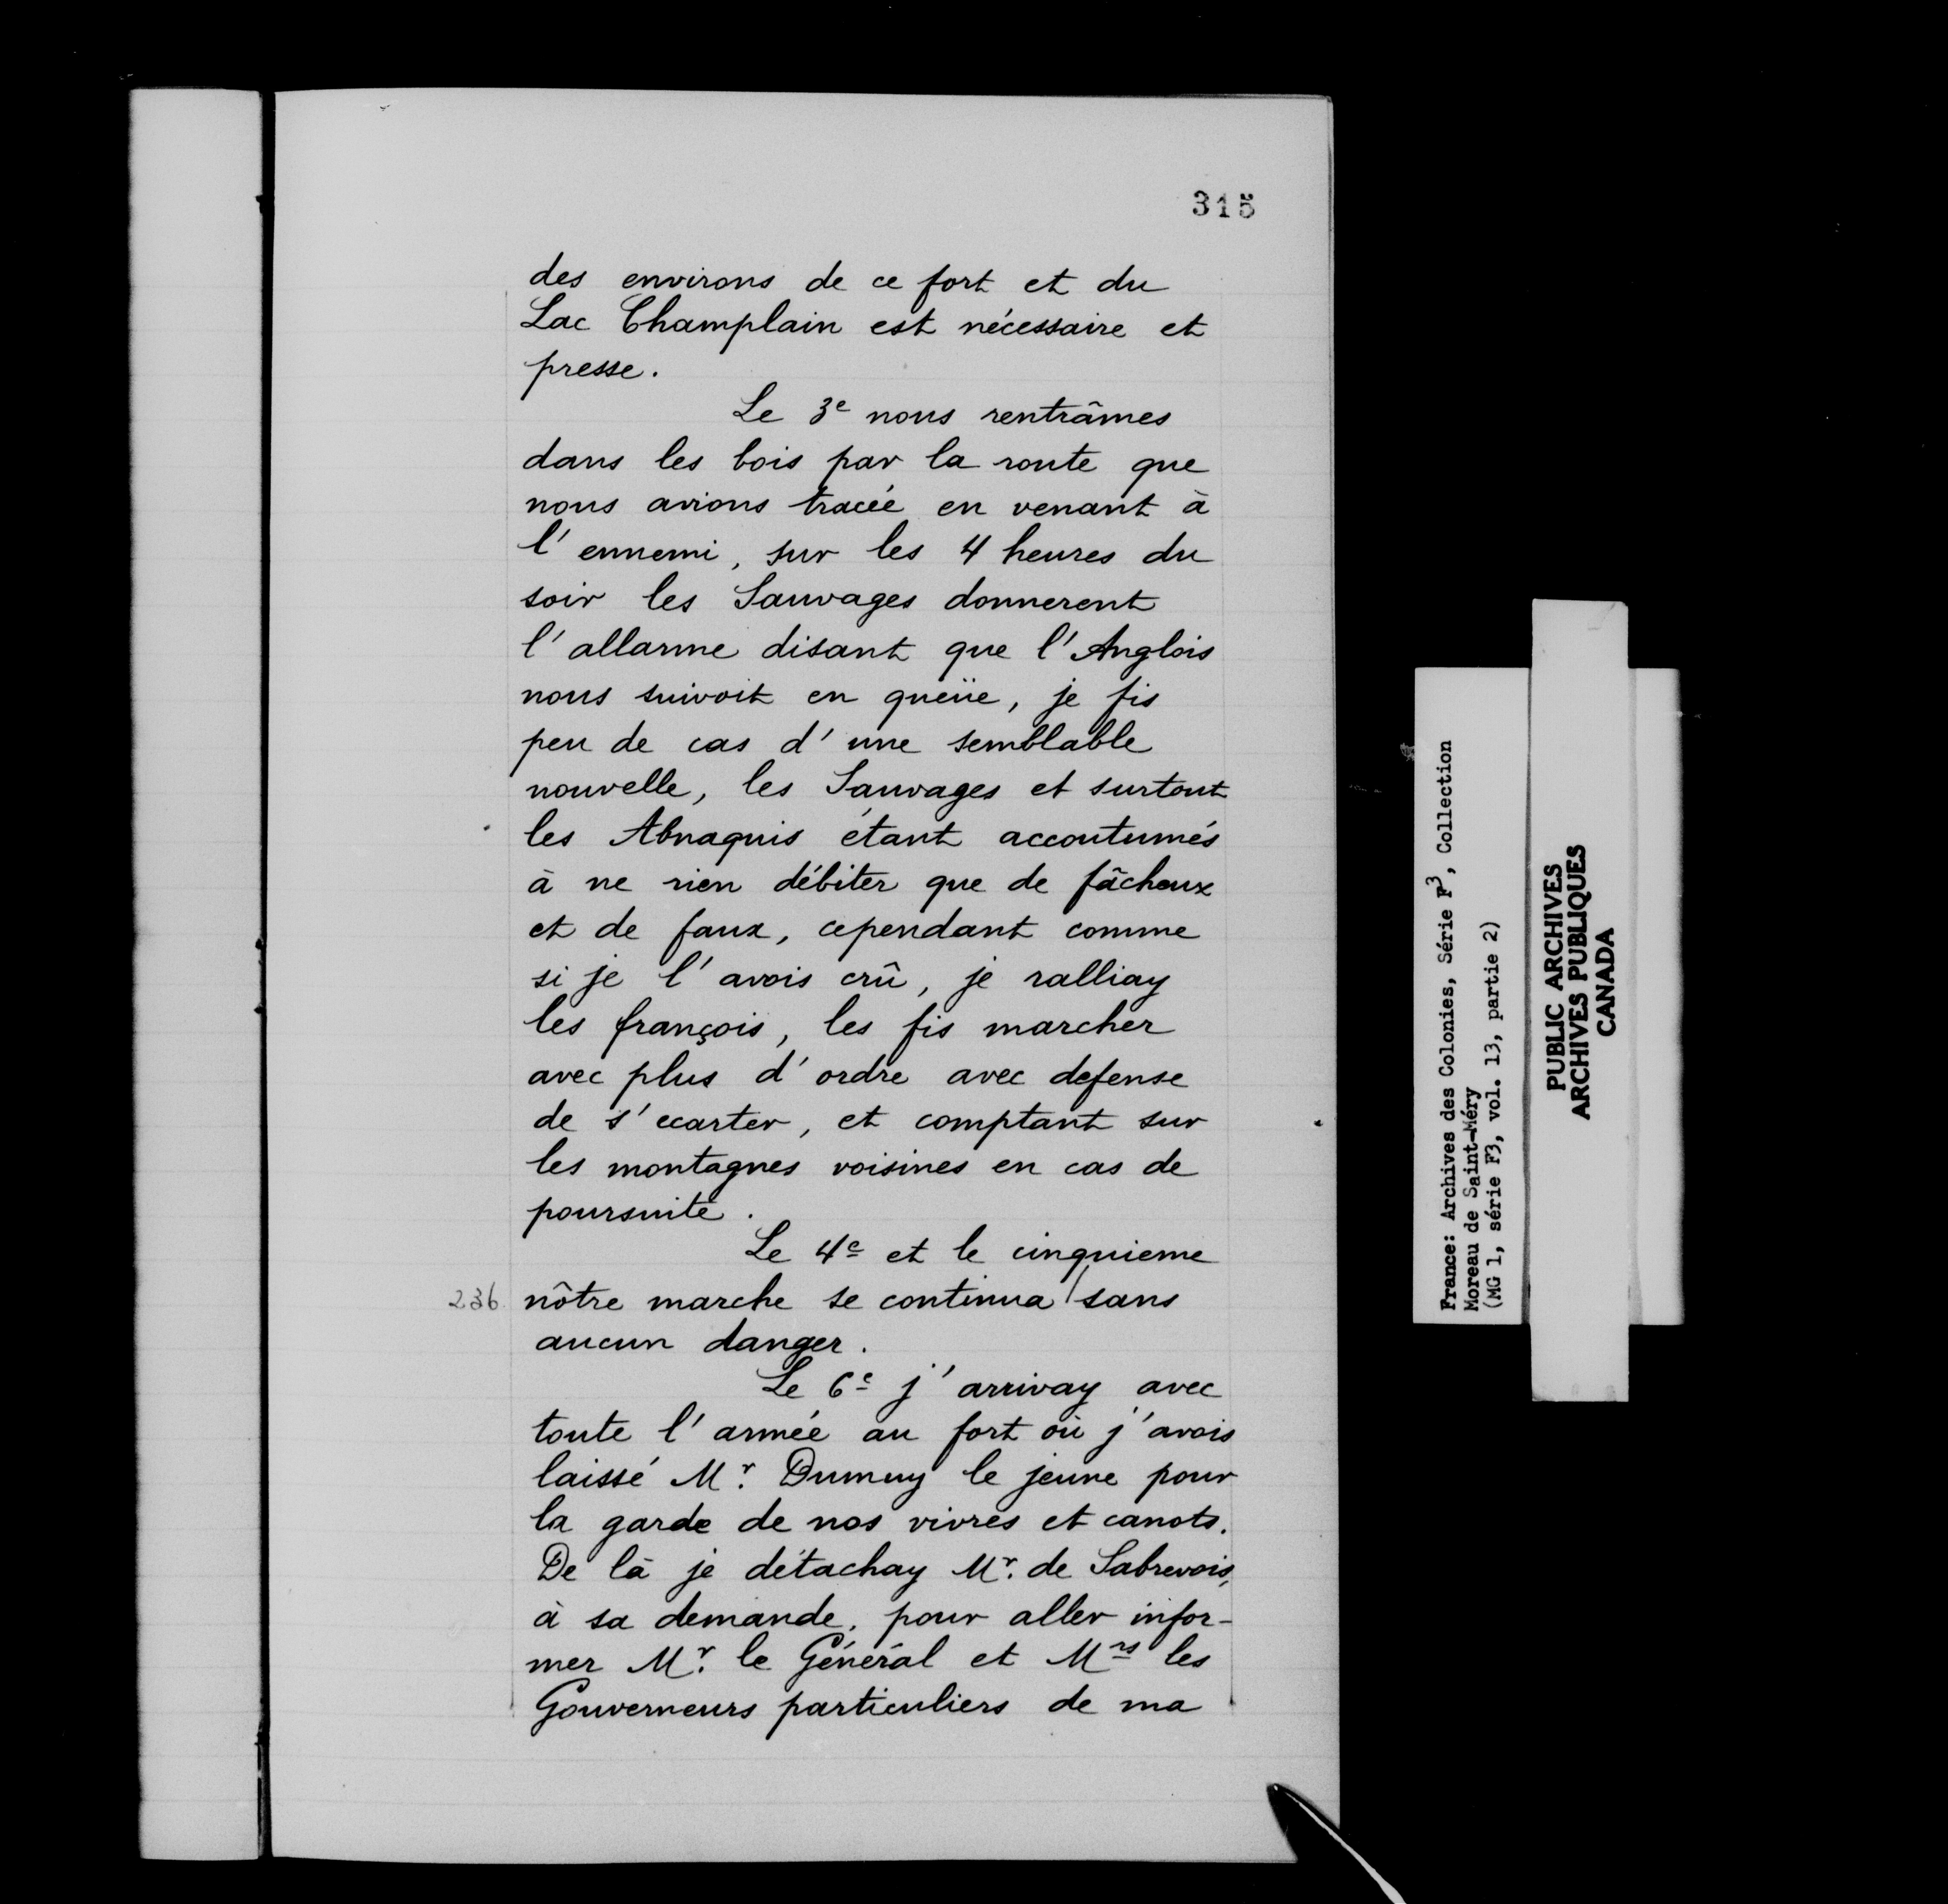 315
des environs de ce fort et du
Lac Champlain est nécessaire et
presse.
Le 3e nous rentrâmes
dans les bois par la route que
nous avions tracée en venant à
l'ennemi, sur les 4 heures du
soir les Sauvages donnerent
l'allarme disant que l'Anglois
nous suivoit en queüe, je fis
peu de cas d'une semblable
nouvelle, les Sauvages et surtout
les Abnaquis étant accoutumés
à ne rien débiter que de fâcheux
et de faux, cependant comme
si je l'avois crû, je ralliay
les françois, les fis marcher
avec plus d'ordre avec defense
de s'ecarter, et comptant sur
les montagnes voisines en cas de
poursuite.
Le 4e et le cinquieme
236. nôtre marche se continua / sans
aucun danger.
Le 6e j'arrivay avec
toute l'armée au fort où j'avois
laissé Mr. Dumuy le jeune pour
la garde de nos vivres et canots.
De là je détachay Mr. de Sabrevois,
à sa demande, pour aller infor-
mer Mr. le Général et Mrs les
Gouverneurs particuliers de ma
France: Archives des Colonies, Série F3, Collection
Moreau de Saint-Méry
(MG 1, série F3, vol. 13, partie 2)
PUBLIC ARCHIVES
ARCHIVES PUBLIQUES
CANADA